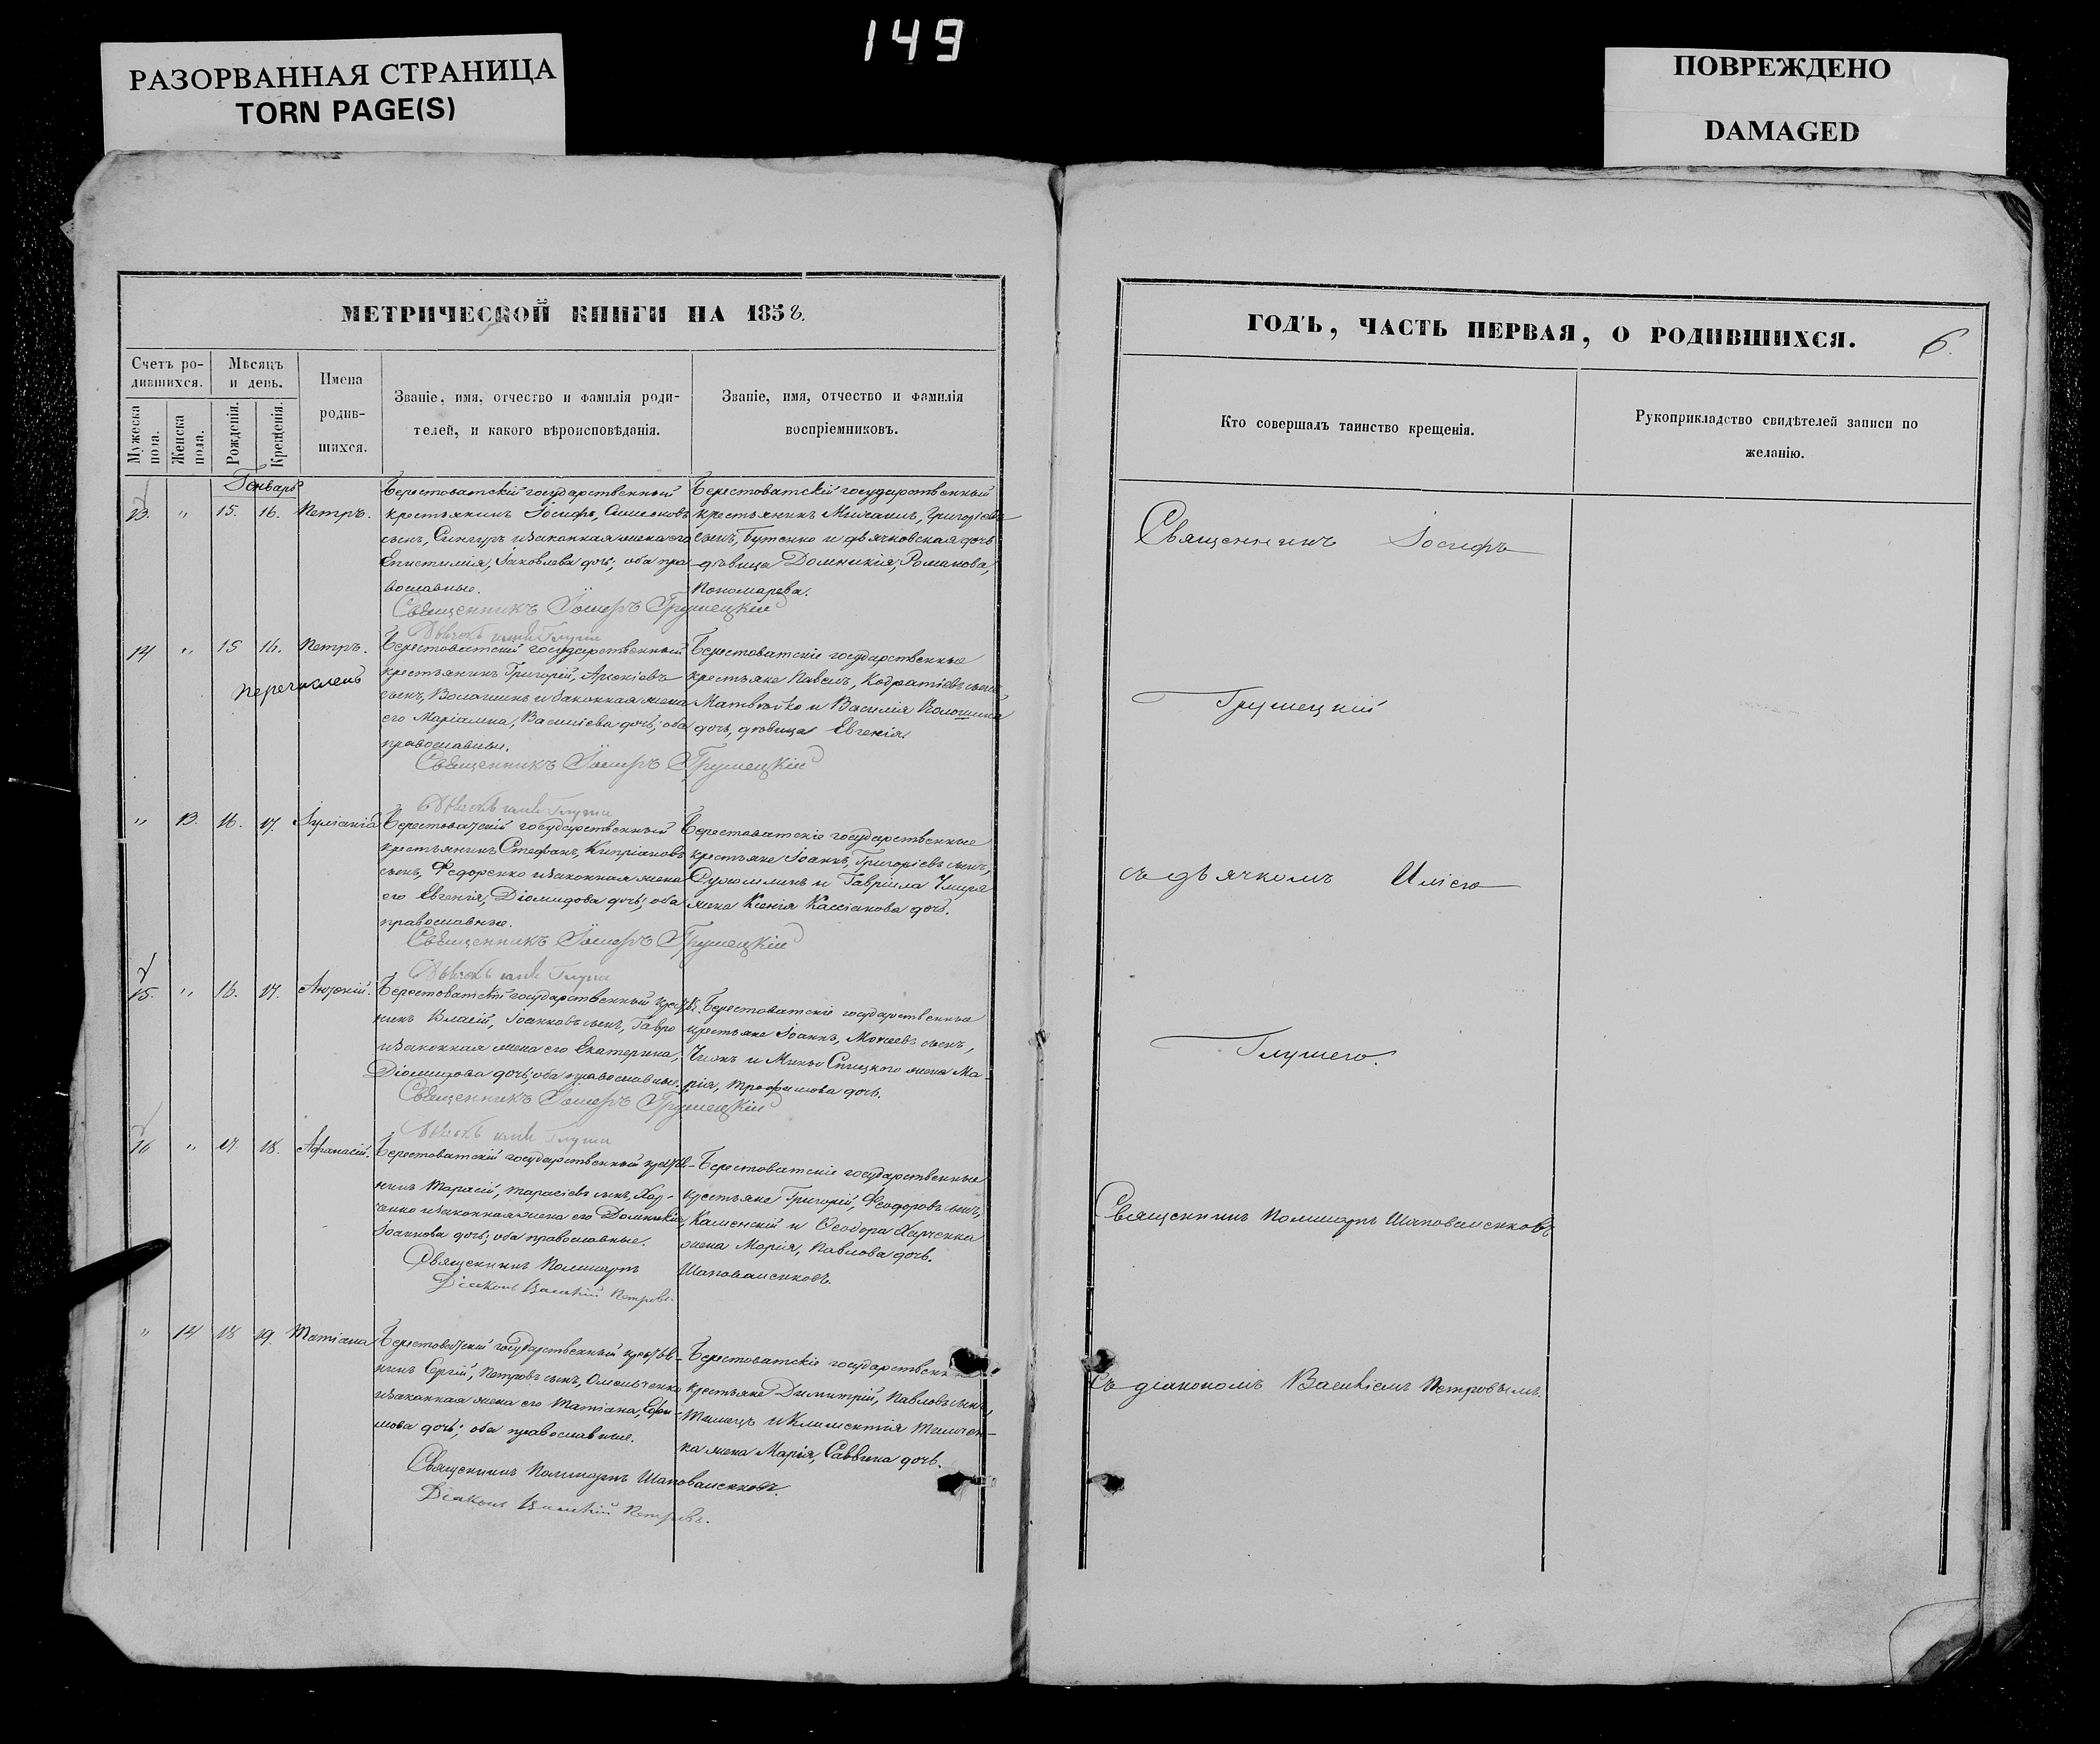 149
РАЗОРВАННАЯ СТРАНИЦА
TORN PAGE(S)
ПОВРЕЖДЕНО
DAMAGED
МЕТРИЧЕСКОЙ КНИГИ НА 1858.
Счетъ ро-
дившихся.
Мужеска
пола.
Женска
пола.
Мѣсяцъ
и день.
Рожденія.
Крещенія.
Имена
родив-
шихся.
Званіе, имя, отчество и фамилія роди-
телей, и какого вѣроисповѣданія.
Званіе, имя, отчество и фамилія
воспріемниковъ.
Генварь
13. " 15. 16. Петръ.
Берестоватскій государственный
крестьянинъ Іосифъ, Симеоновъ
сынъ, Сингуръ и законная жена его
Епистимія, Іаковлева дочь; оба пра-
вославные.
Берестоватскій государственный
крестьянинъ Михаилъ, Григоріевъ
сынъ, Бутенко и дьячковская дочь
дѣвица Домникія, Романова,
Пономарева.
Священникъ Іосифъ Грушецкій
14 " 15 16. Петръ.
перечисленъ
Берестоватскій государственный
крестьянинъ Григорій, Арсеніевъ
сынъ, Волошинъ и законная жена
его Маріамна, Василіева дочь; оба
православные.
Берестоватскіе государственные
крестьяне Павелъ, Кодратіевъ сынъ,
Матвѣйко и Василія Волошина
дочь, дѣвица Евгенія.
Священникъ Іосифъ Грушецкій
" 13. 16. 17. Іуліанія
Берестоватскій государственный
крестьянинъ Стефанъ, Кипріановъ
сынъ, Федоренко и законная жена
его Евгенія, Діомидова дочь; оба
православные.
Берестоватскіе государственные
крестьяне Іоаннъ, Григоріевъ сынъ,
и Гавріила
жена Ксенія Кассіанова дочь.
Священникъ Іосифъ Грушецкій
15. " 16. 17. Антоній.
Берестоватскій государственный крестья-
нинъ Власій, Іоанновъ сынъ, Гавро
и законная жена его Екатерина,
Діомидова дочь; оба православные.
Берестоватскіе государственные
крестьяне Іоаннъ, Моисеевъ сынъ,
и Мины Спицкого жена Ма-
рія, Трофимова дочь.
Священникъ Іосифъ Грушецкій
16 " 17 18. Афанасій.
Берестоватскій государственный крестья-
нинъ Тарасій, Тарасіевъ сынъ, Хар-
ченко и законная жена его Домникія,
Іоаннова дочь; оба православные.
Берестоватскіе государственные
крестьяне Григорій, Феодоровъ сынъ,
Каменскій и Феодора Харченка
жена Марія, Павлова дочь.
Священникъ Поликарпъ Шаповаленковъ.
Діаконъ Василій Петровъ.
" 14 18 19. Татіана
Берестоватскій государственный крестья-
нинъ Сергій, Петровъ сынъ, Омельченко
и законная жена его Татіана, Ефи-
мова дочь; оба православные.
Берестоватскіе государственные
крестьяне Димитрій, Павловъ сынъ,
и Климентія
жена Марія, Саввина дочь.
Священникъ Поликарпъ Шаповаленковъ.
Діаконъ Василій Петровъ.
ГОДЪ, ЧАСТЬ ПЕРВАЯ, О РОДИВШИХСЯ.
6.
Кто совершалъ таинство крещенія.
Рукоприкладство свидѣтелей записи по
желанію.
Священникъ Іосифъ
Грушецкій
съ дьячкомъ Иліею
Глушею.
Священникъ Поликарпъ Шаповаленковъ
Съ діакономъ Василіемъ Петровымъ.